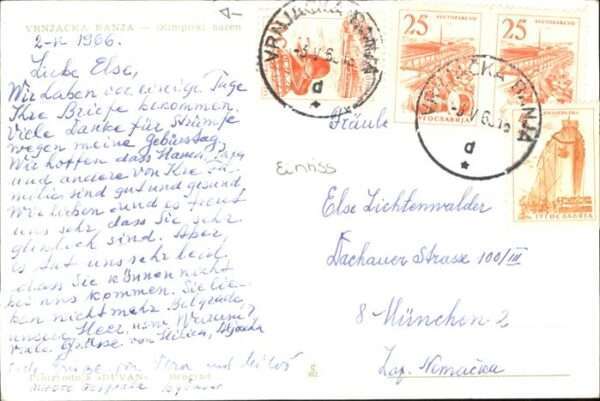 VRNJAČKA BANJA — Olimpiski bazen
2-V 1966.
Liebe Else,
Wir haben vor einige Tage
Ihre Briefe bekommen.
Viele Danke für Strümpfe
wegen meine Geburtstag,
Wir hoffen dass
und andere von Ihre Fa-
milie sind gut und gesund
Wir und es freut
uns sehr, dass Sie sehr
glücklich sind. Aber
es tut uns sehr leid,
dass Sie können nicht
bei uns kommen. Sie
kan nicht mehr Belgrade,
unsere Meer, usw.
Viele Grüsse von
Grüsse von und
Beograd
Fräule
Einriss
Else Lichtenwalder
Dachauer Strasse 100/III
8 München-2
Zap. Nemačka
VRNJAČKA BANJA
d
VRNJAČKA BANJA
d
25
JUGOSLAVIJA
25
JUGOSLAVIJA
JUGOSLAVIJA